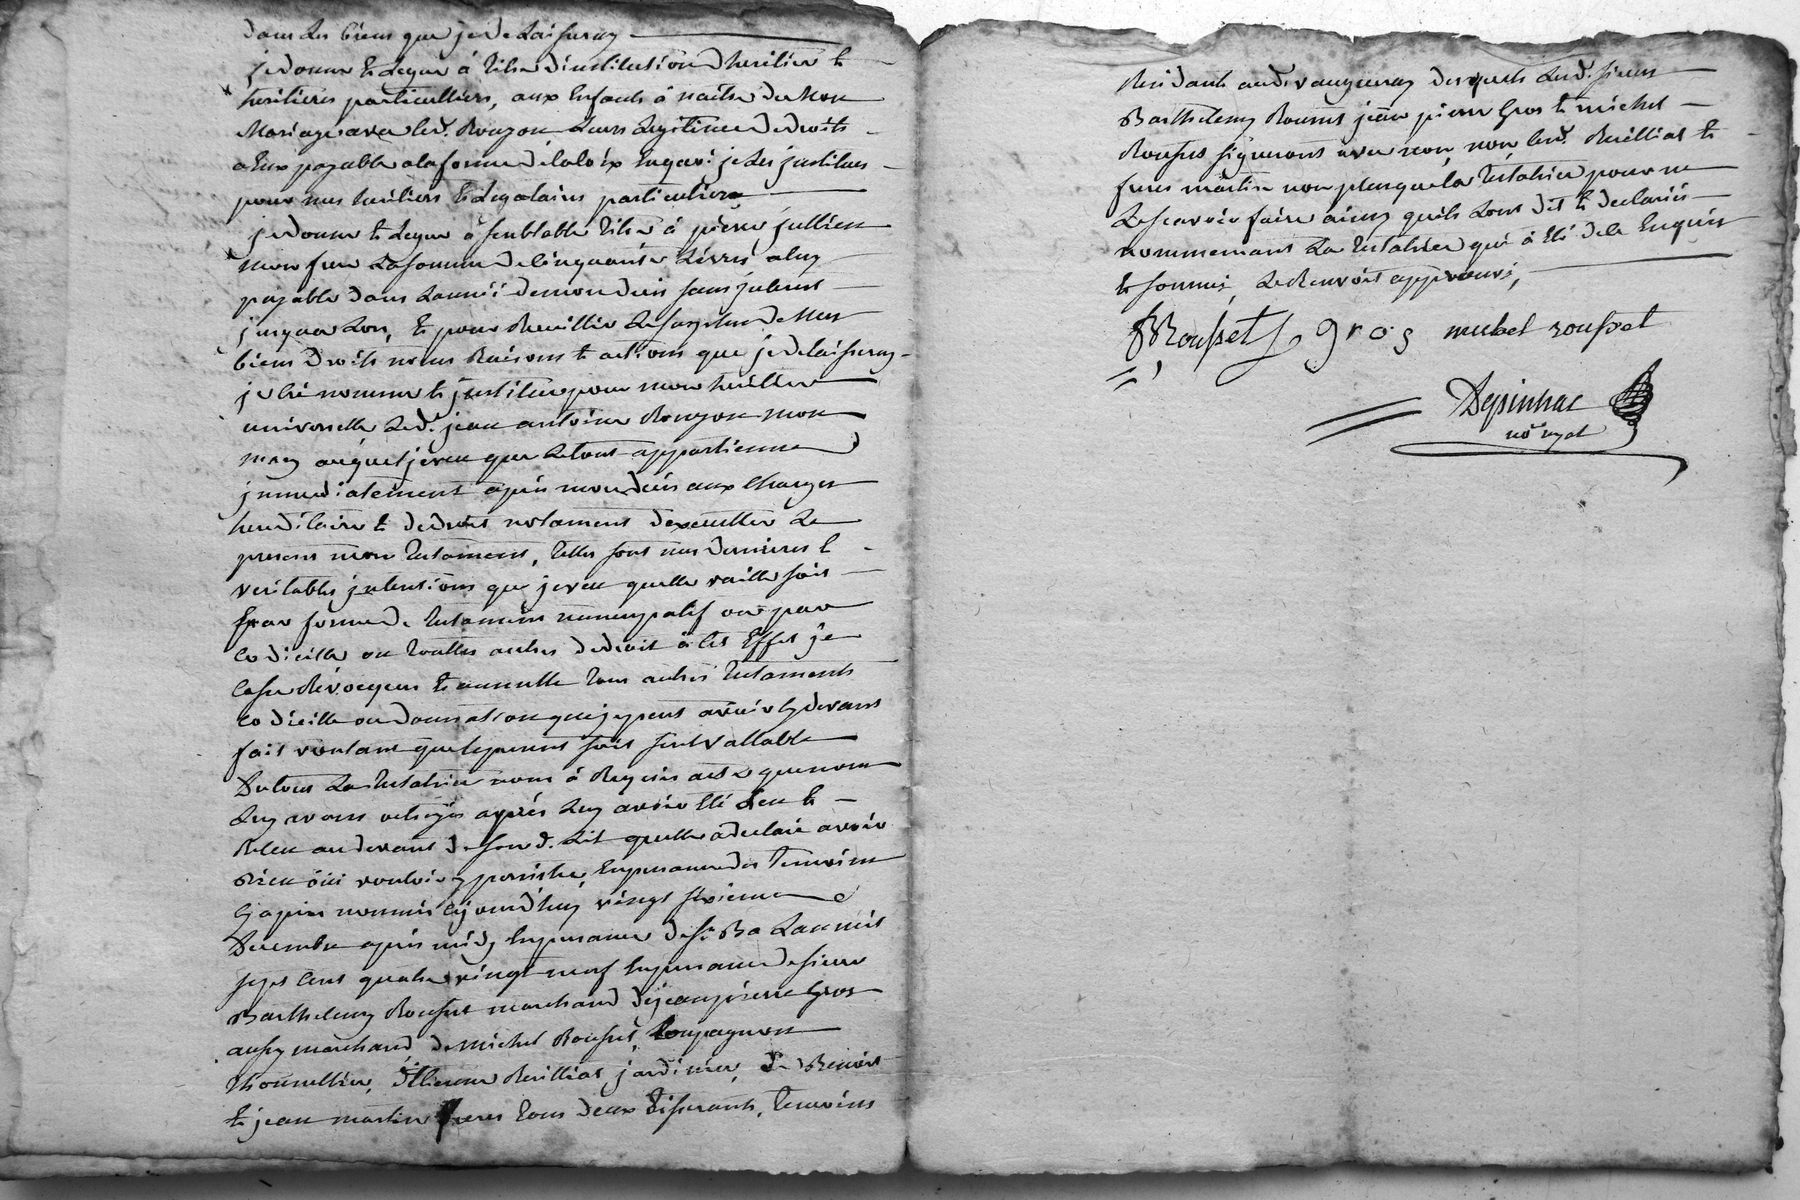 dans les biens que je delaisseray
je donne et legue á titre d'institution d'heritier et
heritieres particulliers, aux enfants á naitre de mon
Mariage avec led. Rougon leurs legitimes de droits
a eux payable a la forme de la loix en quoi je les justitues
pour mes heritiers et legataires particuliers
je donne et legue á semblable titre á pierre jullien
mon frere la somme de cinquante livres á luy
payable dans l'année de mon decés sans interest
jusqua lors, et pour Recuillir le surplus de mes
biens droits noms Raisons et actions que je delaisseray
je hé nomme et justitue pour mon heritier
universelle led. jean antoine Rougon mon
mary auquel je veu que le tout appartienne
jmmediatement aprés mon decés aux charges
hereditaire et de droit notament d'executter le
present mon testament, telles sont mes dernieres et
veritables jntentions que je veu quelle vaille soit
par forme de testament nuncupatif ou par
codicille ou touttes autres de droit á cet Effet je
casse Révoque et annulle tous autres testaments
codicille ou donnation que je peut avoir cy devant
fait voulant que le present soit seul vallable
Du tout la testatrice nous á Requis acte que nous
luy avons octroyé aprés luy avoir été leu et
Releu au devant de son d. lit quelle á declaré avoir
Bien oüi vouloir y persister en presence des temoins
cy aprés nommés cejourd'huy vingt sixieme
Decembre aprés midy l'an mil
sept cent quatre vingt neuf en presence de sieur
Barthelemy Rousset marchand de jean pierre Gros
aussy marchand, de Michel Rousset, Compagnon
thonnellier, Etienne Reilliat jardinier, de Benoist
et jean martin freres tous deux tisserants, temoins
Residants aud. vaugneray desquels lesd. sieurs
Barthelemy Rousset jean pierre Gros et michel
Rousset signeront avec nous, non led. Reilliat et
freres martin non plus que la testatrice pour ne
le scavoir faire ainsy quils l'ont dit et declarés
nommement la testatrice qui á été de le Enquis
et sommés, le Renvois approuvé,
BRousset gros michel rousset
Depinhac
no. ryal